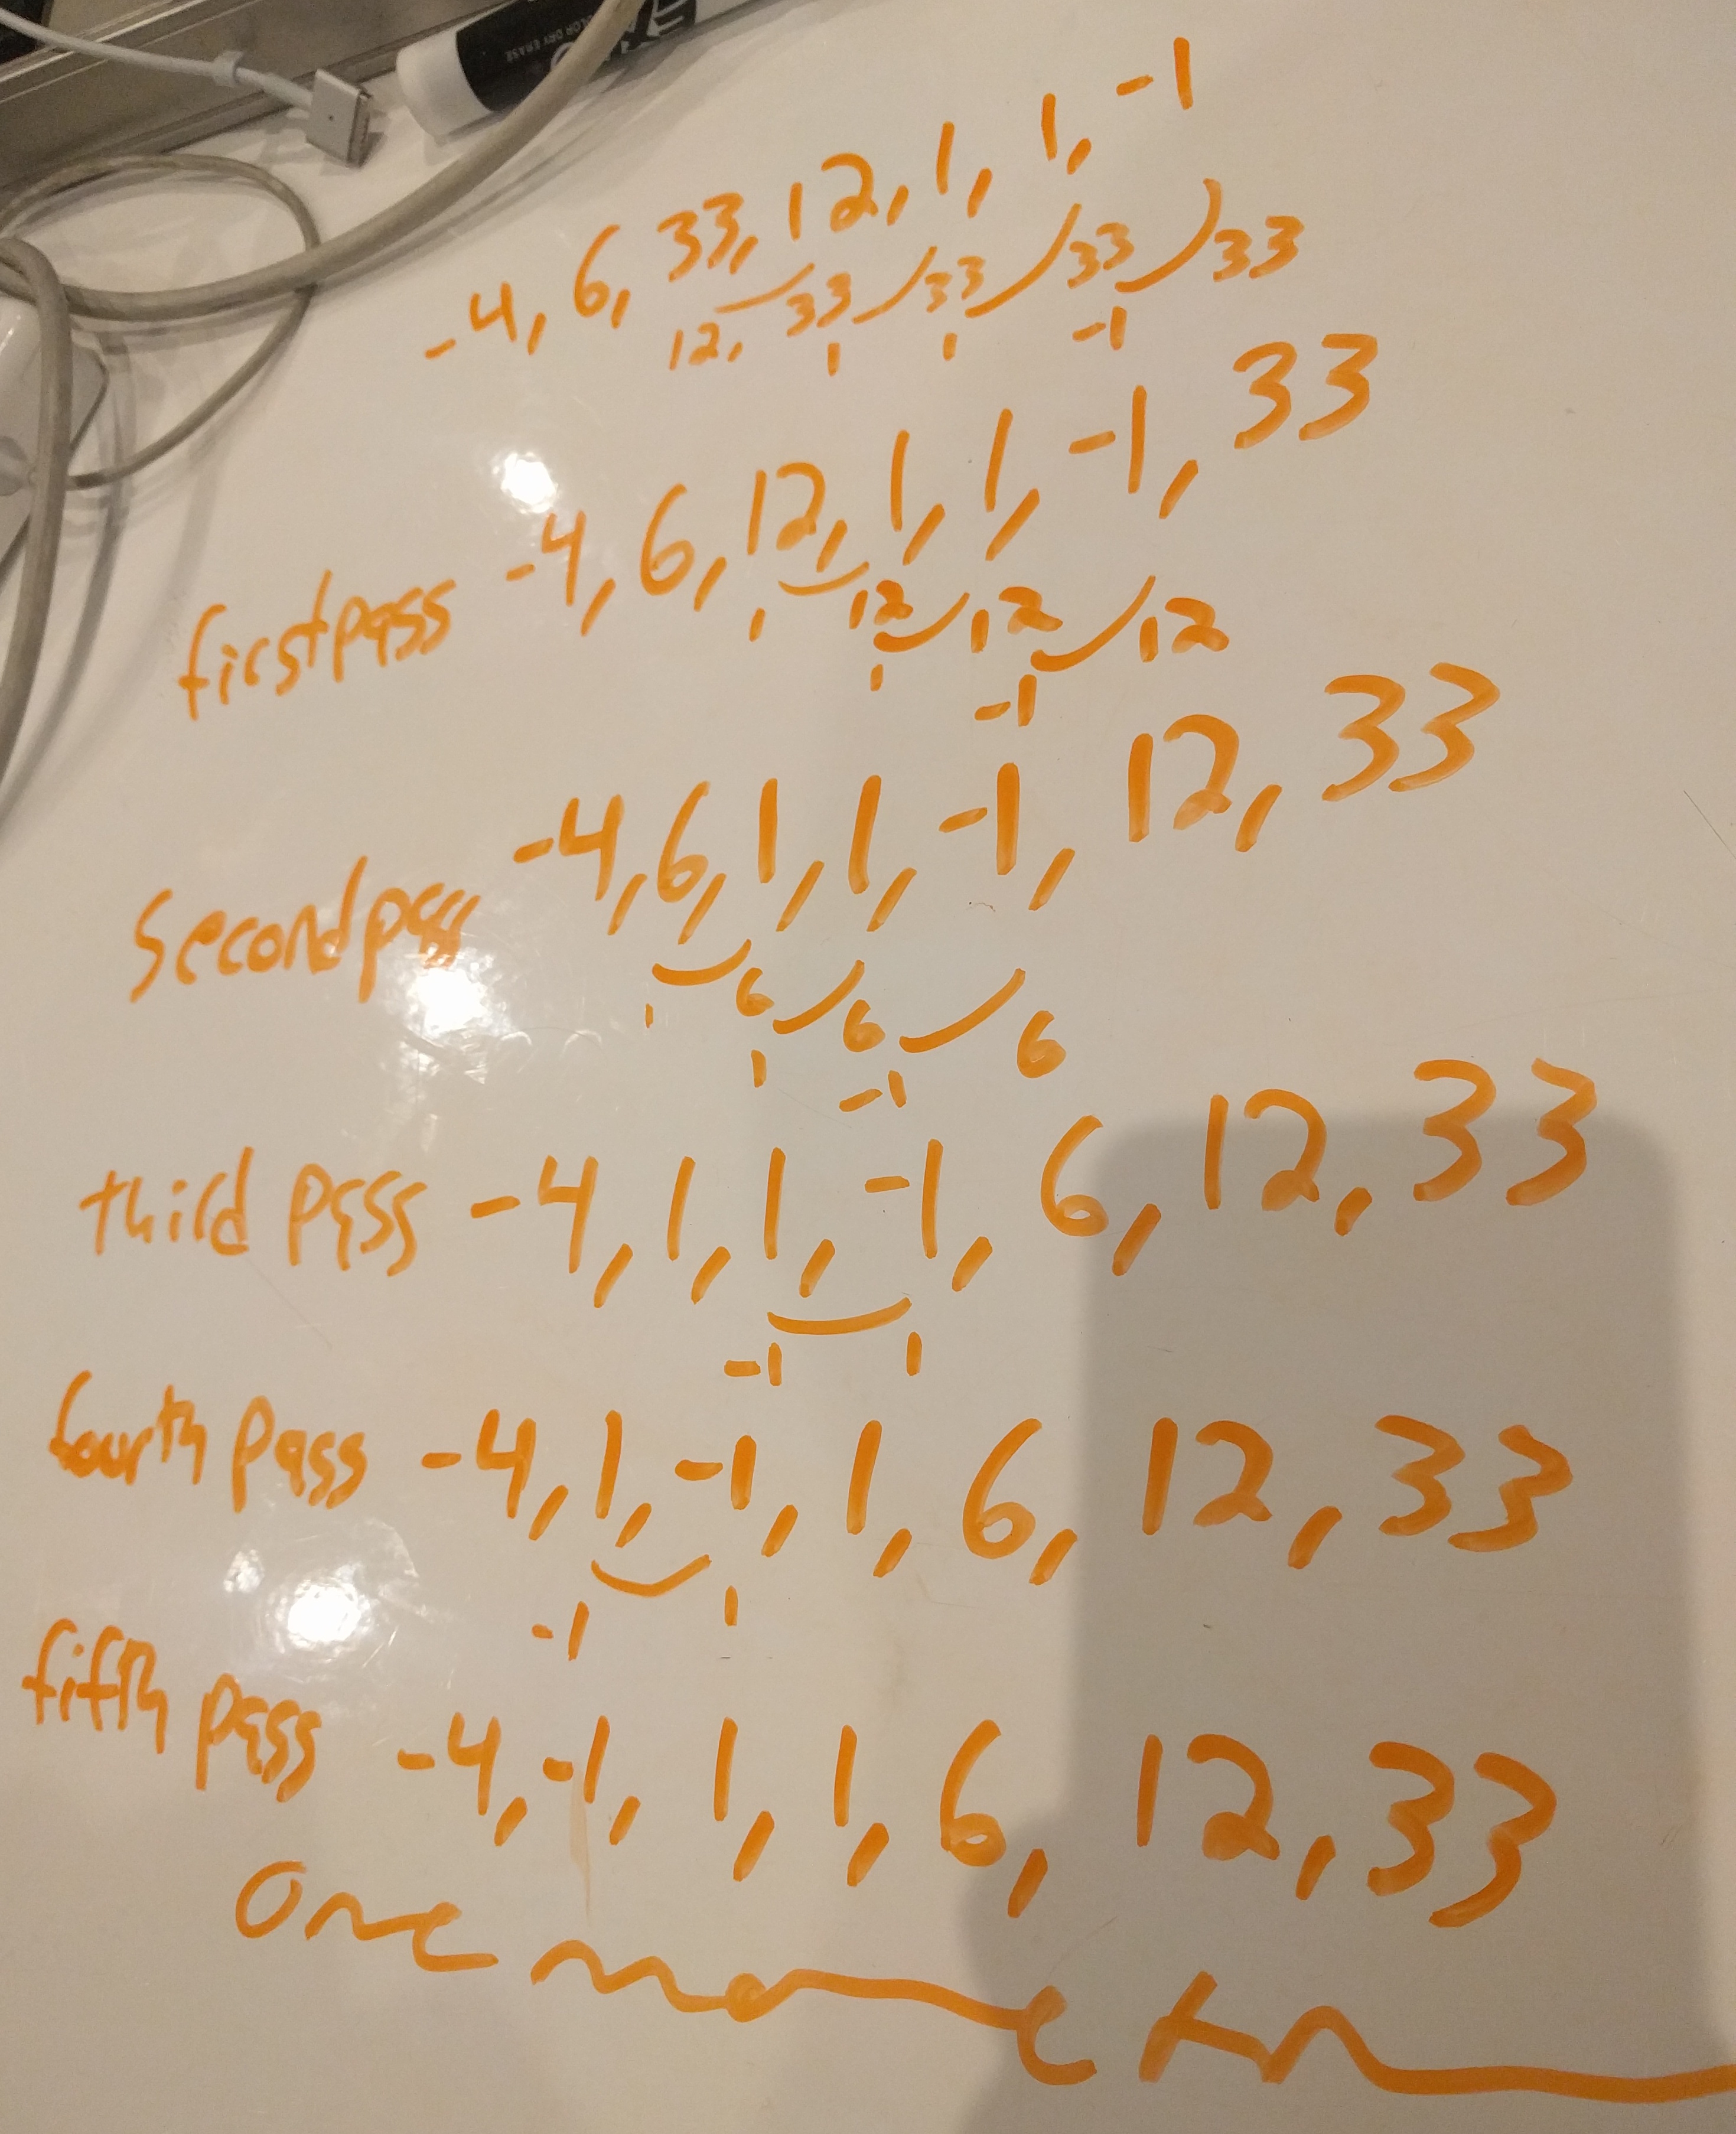 -4, 6, 33, 12, 1, 1, -1
12, 33 33 33 33
1 1 -1
first pass -4, 6, 12, 1, 1, -1, 33
1 12 12 12
1 -1
second pass -4, 6, 1, 1, -1, 12, 33
1 6 6 6
1 -1
third pass -4, 1, 1, -1, 6, 12, 33
-1 1
fourth pass -4, 1, -1, 1, 6, 12, 33
-1 1
fifth pass -4, -1, 1, 1, 6, 12, 33
One more